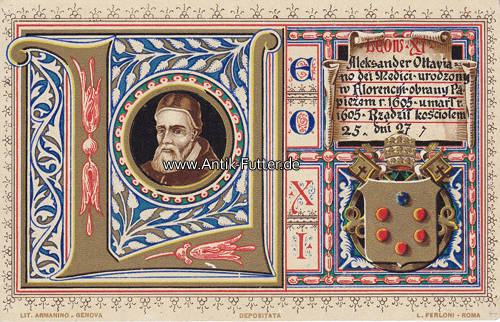 L
E
O
X
I
XI
Aleksander Ottavia-
no dei Medici · urodzony
w Florencyi · obrany Pa
pieżem r. 1605 · umarł r.
1605. Rządził kościołem
25. dni 27
www.Antik-Futter.de
LIT. ARMANINO - GENOVA
DEPOSITATA
L. FERLONI - ROMA